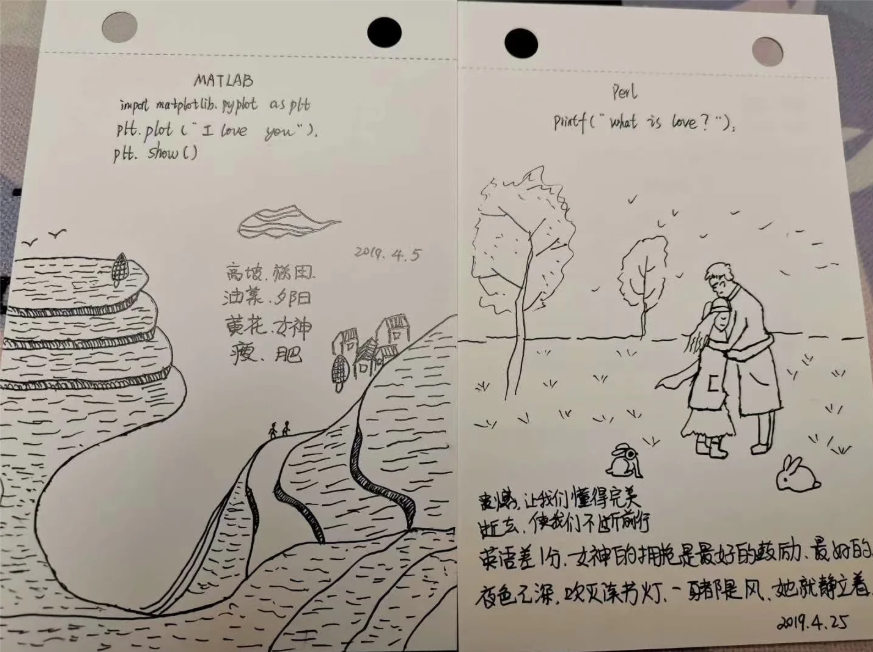 MATLAB
import matplotlib.pyplot as plt
plt.plot("I love you").
plt.show()
2019.4.5
高坡.梯田.
油菜.夕阳
黄花.女神
瘦、肥
Perl
printf("what is love?"),
让我们懂得完美
逝去、使我们不断前行
英语差1分、女神的拥抱是最好的鼓励、最好的
夜色已深,吹灭读书灯、一身都是风、她就静立着.
2019.4.25